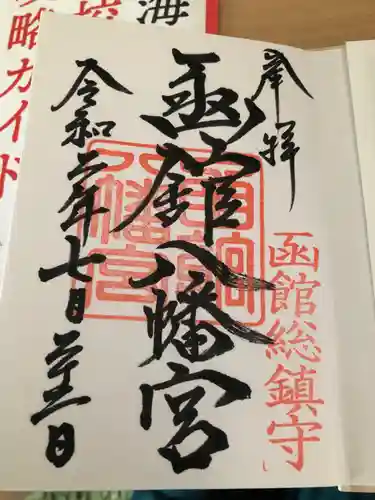 奉拝
函館総鎮守
函館八幡宮
令和二年七月二十二日
海
略ガイド